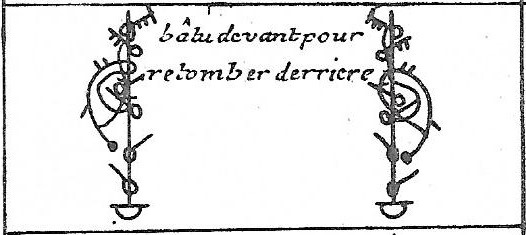 bâtu devant pour
retomber derriere